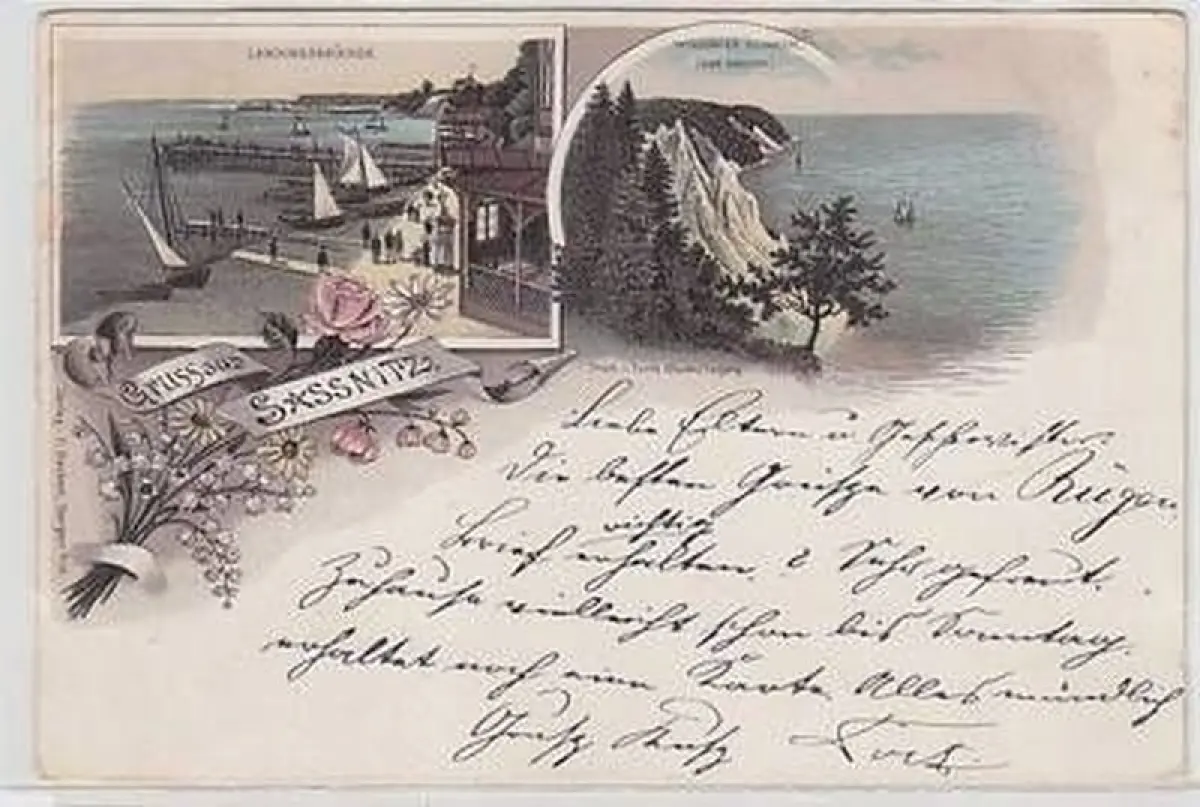 LANDUNGSBRÜCKE
WISSOWER KLINKEN
Gruss aus
SASSNITZ.
Liebe Eltern u Geschwister
Die besten Grüsse von Rügen.
richtig
Brief erhalten & Sehr gefreut.
Zuhause vielleicht schon bis Sonntag.
erhaltet noch eine Karte. Alles mündlich
Gruss Kuss